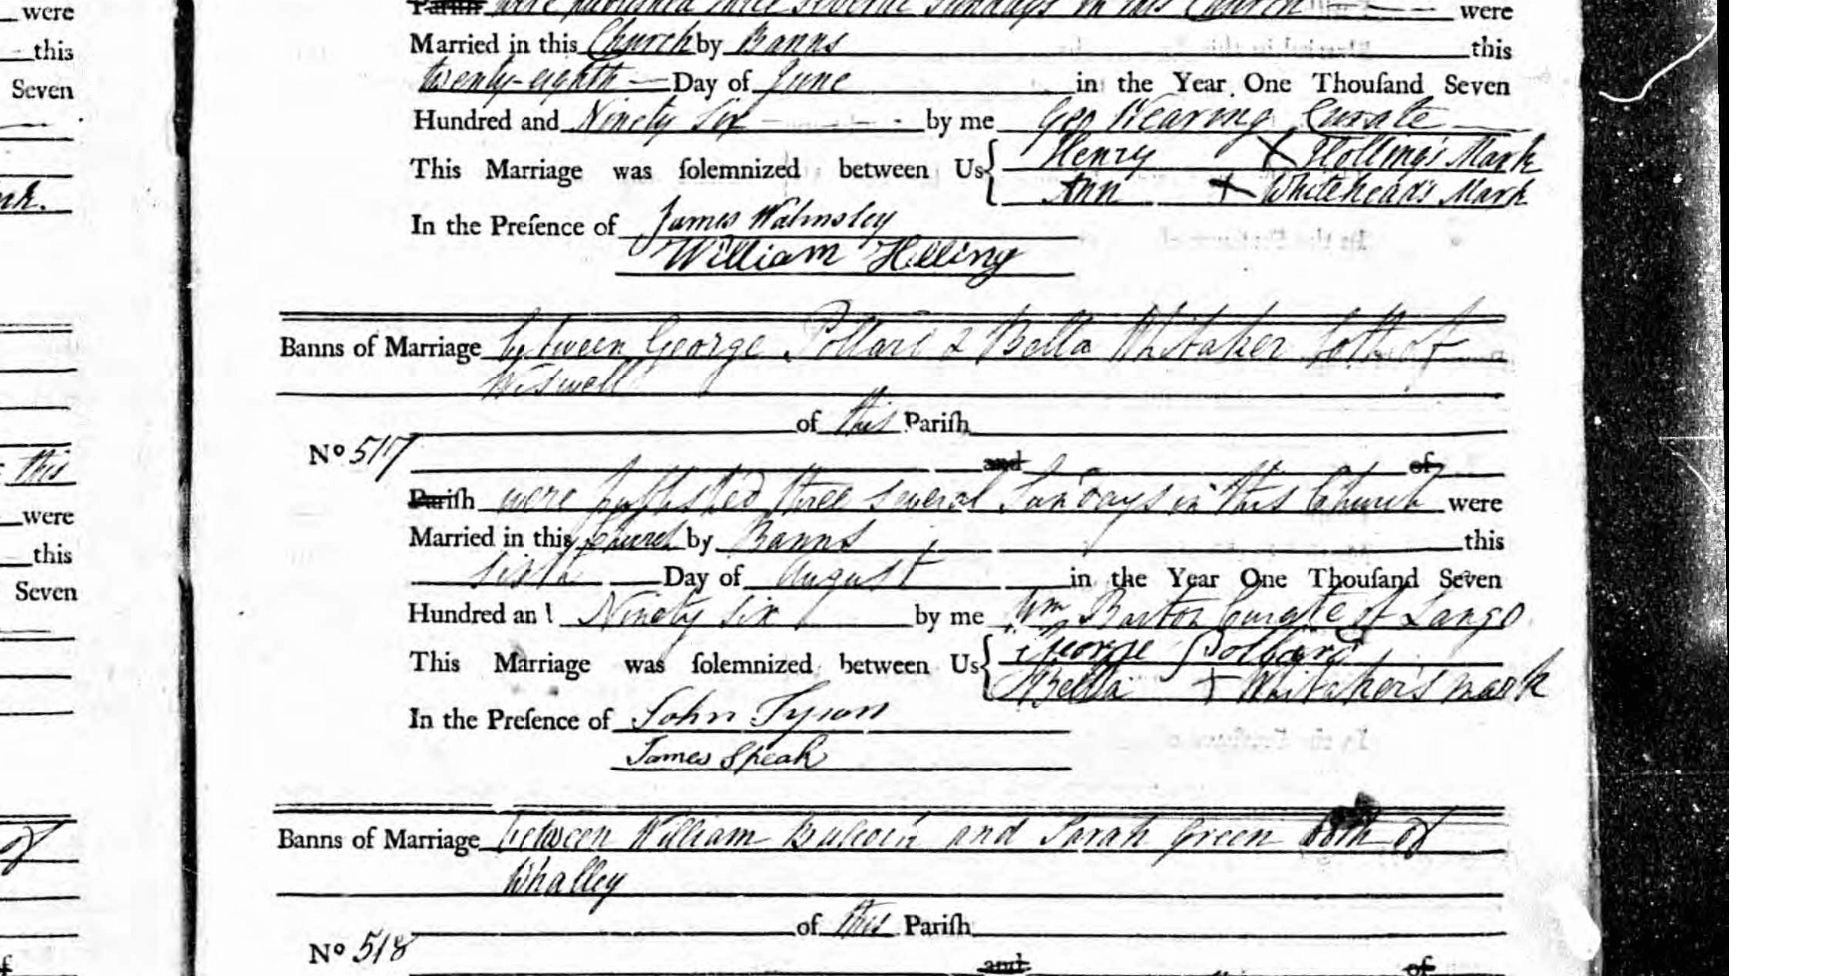 were
this
Seven
this
were
this
Seven
of
Parish were published three several Sundays in this Church were
Married in this Church by Banns this
twenty-eighth Day of June in the Year One Thouſand Seven
Hundred and Ninety Six by me Geo Wearing Curate
This Marriage was ſolemnized between Us { Henry X Holling's Mark
Ann X Whitehead's Mark
In the Preſence of James Walmsley
William Helling
Banns of Marriage between George Pollard & Bella Whitaker both of
Wiswell
of this Pariſh
No 517
and of
Pariſh were published three several Sundays in this Church were
Married in this Church by Banns this
sixth Day of August in the Year One Thouſand Seven
Hundred an l Ninety six by me Wm Barton Curate of Lango
This Marriage was ſolemnized between Us { George Pollard
Bella X Whitaker's mark
In the Preſence of John Tyson
James Speak
Banns of Marriage between William and Sarah Green both of
Whalley
of this Pariſh
No 518
and of